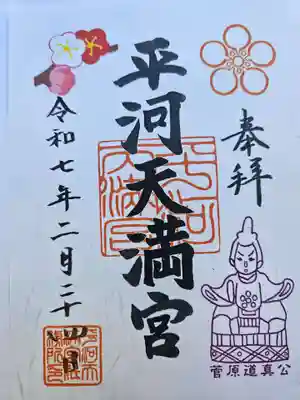 奉拝
菅原道真公
平河天満宮
令和七年二月二十四日